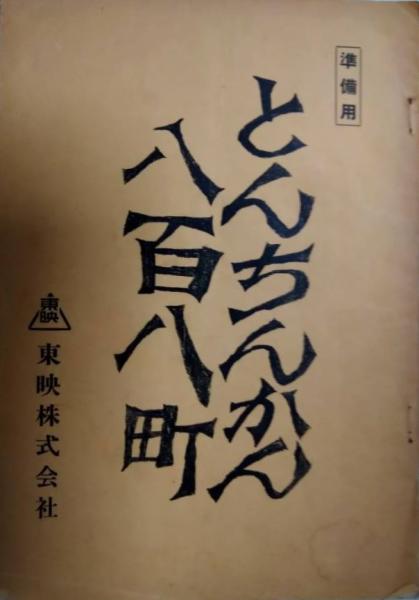 準備用
とんちんかん
八百八町
東映
東映株式会社